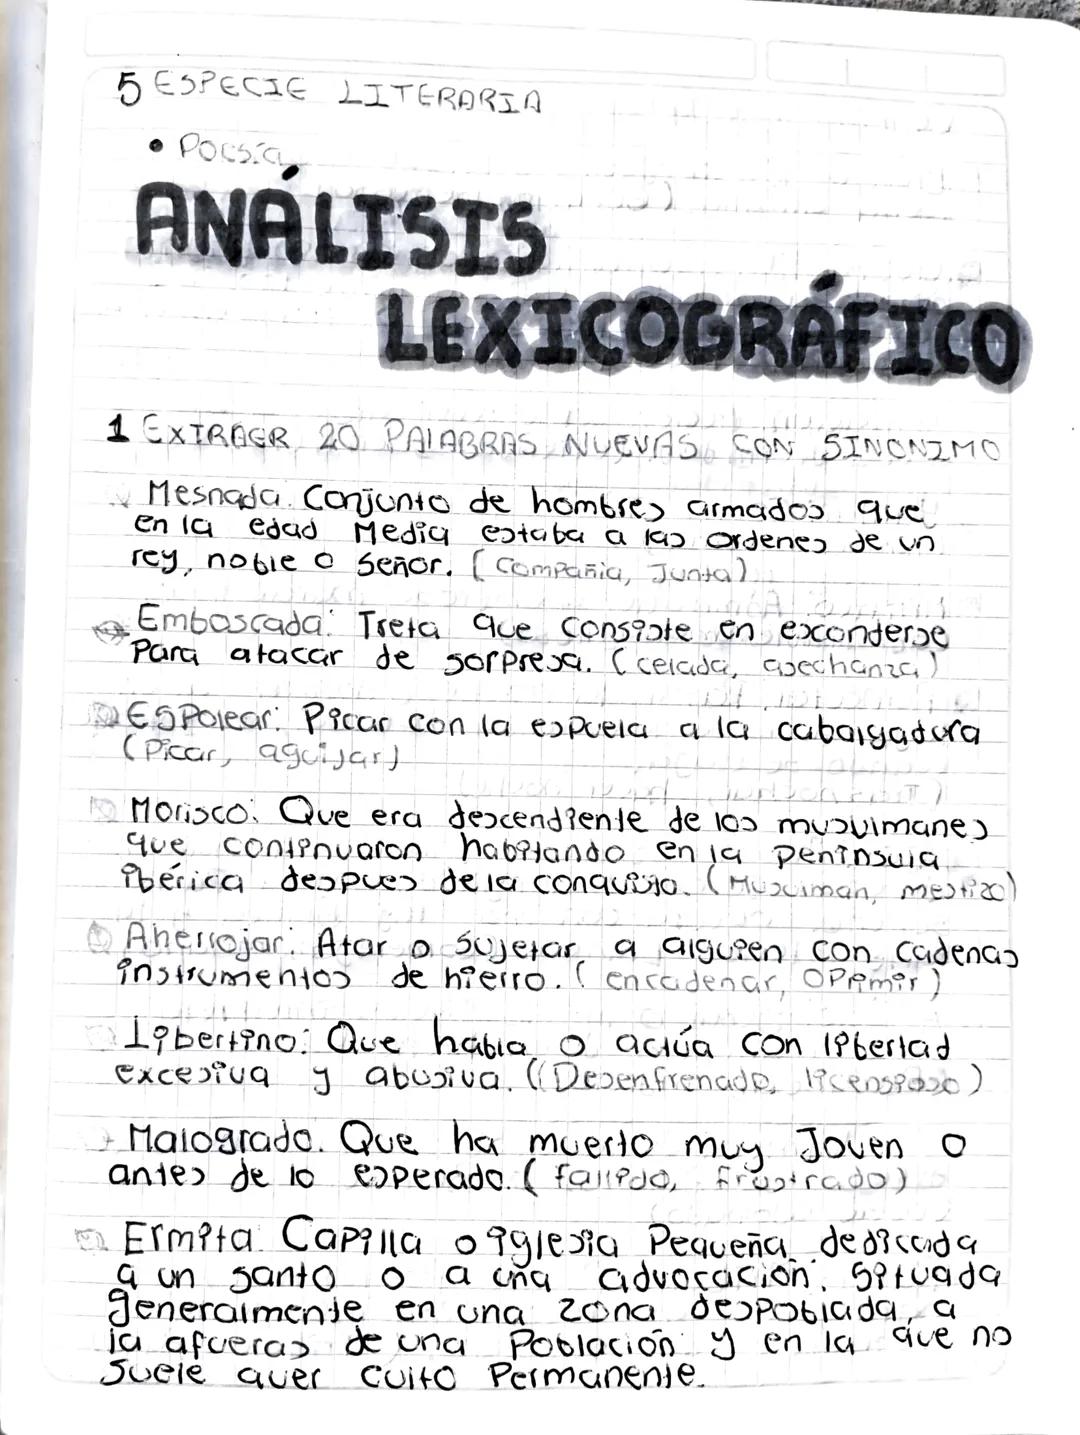 5 ESPECIE LITERARIA
• Poesía
ANÁLISIS
LEXICOGRÁFICO
1 EXTRAER 20 PALABRAS NUEVAS CON SINONIMO
Mesnada. Conjunto de hombres armados que
en la edad Media estaba a las ordenes de un
rey, noble o Señor. (Compañia, Junta)
Emboscada: Treta que consiste en exconderse
Para atacar de sorpresa. (celada, asechanza)
ESPolear: Picar con la espuela a la cabalgadura
(Picar, aguijar)
Morisco: Que era descendiente de los musulmanes
que continuaron habitando en la península
ibérica despues de la conquista. (Musulman, mestizo)
Aherrojar: Atar o sujetar a alguien con cadenas
instrumentos de hierro. (encadenar, OPrimir)
Libertino: Que habla o actúa con libertad
excesiva y abusiva. ((Desenfrenado, licensioso)
Malogrado. Que ha muerto muy Joven o
antes de lo esperado. (fallido, frustrado)
Ermita: Capilla o iglesia Pequeña dedicada
a un santo o a una advocación. Situada
generalmente en una zona despoblada, a
la afueras de una Población y en la que no
suele aver culto Permanente.